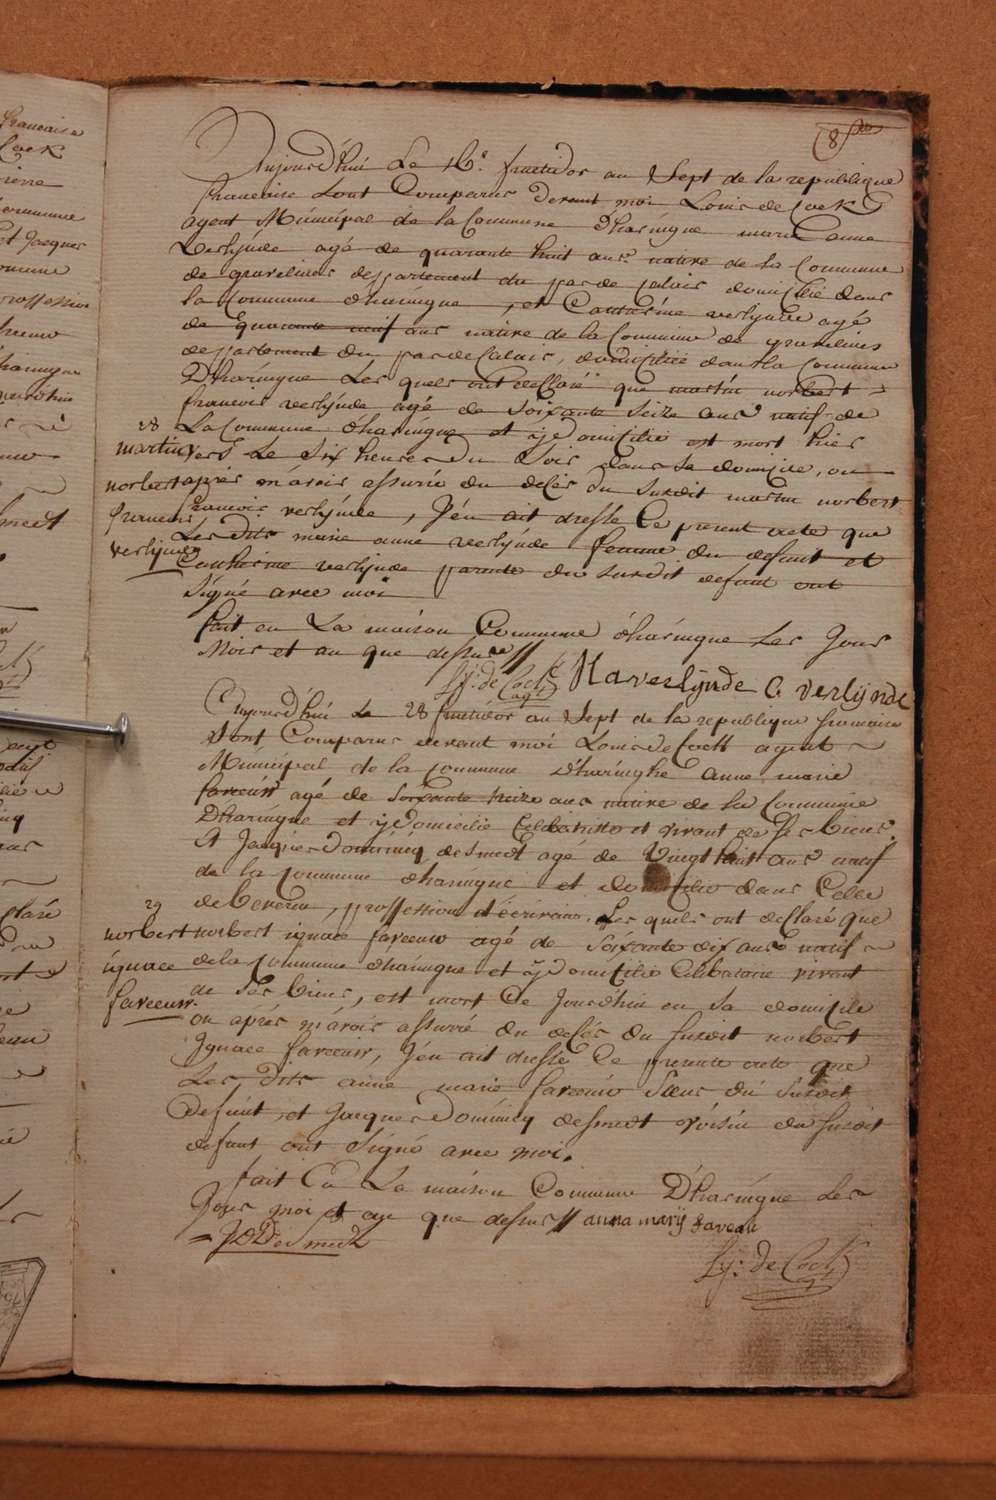 8
Aujourd'hui Le 16e fructidor au Sept de la republique
francaise Sont Comparus devant moi Louis de Cock
agent Municipal de la Commune d'haringue marie anne
Verlijnde agé de quarante huit ans native de la Commune
de gravelines departement du pas de calais domicilié dans
la Commune d'haringue, et Catherine verlijnde agé
de quarante neuf ans native de la Commune de gravelines
departement du pas de Calais, domicilié dans la Commune
D'haringue Les quels ont declaré que martin norbert
francois verlijnde agé de soixante seize ans natif de
28
La Commune d'haringue et ij domicilié est mort hier
martin
vers Le Six heures du Soir dans sa domicile, ou
norbert
aprés m'avoir assurée du decés du susdit martin norbert
francois
francois verlijnde, J'en ait dresse Ce present acte que
verlijnde
Les dits marie anne verlijnde femme du defunt et
Catherine verlijnde parente du susdit defunt ont
Signé avec moi
fait en La maison Commune d'haringue Les Jours
Mois et an que dessus //
Ly: de Cock agt M a verlijnde C verlijnde
Aujourd'hui Le 28 fructidor au Sept de la republique francaise
Sont Comparus devant moi Louis de Cock agent
Municipal de la Commune d'haringhe anne marie
faveeuw agé de soixante treize ans native de la Commune
D'haringue et ij domicilié Celibataire et vivant de Ses biens.
et Jacques Dominicq desmedt agé de Vingt huit ans natif
de la Commune d'haringue et domicilié dans Celle
29
de beveren, proffession d'ecrivain. Les quels ont declaré que
norbert
norbert ignace faveeuw agé de Soixante dix ans natif
ignace
de la Commune d'haringue et ij domicilié Celibataire vivant
faveeuw.
de Ses biens, est mort Ce Jourd'hui en Sa domicile
ou aprés m'avoir assurrée du decés du susdit norbert
Ignace faveeuw, J'en ait dresse Ce presente acte que
Les dits anne marie faveeuw Sœur du Susdit
defunt, et Jacques Dominicq desmedt voisin du susdit
defunt ont Signé avec moi.
fait En La maison Commune D'haringue Les
Jour moi et an que dessus // anna marij faveau
J D Desmedt
Ly: de Cock